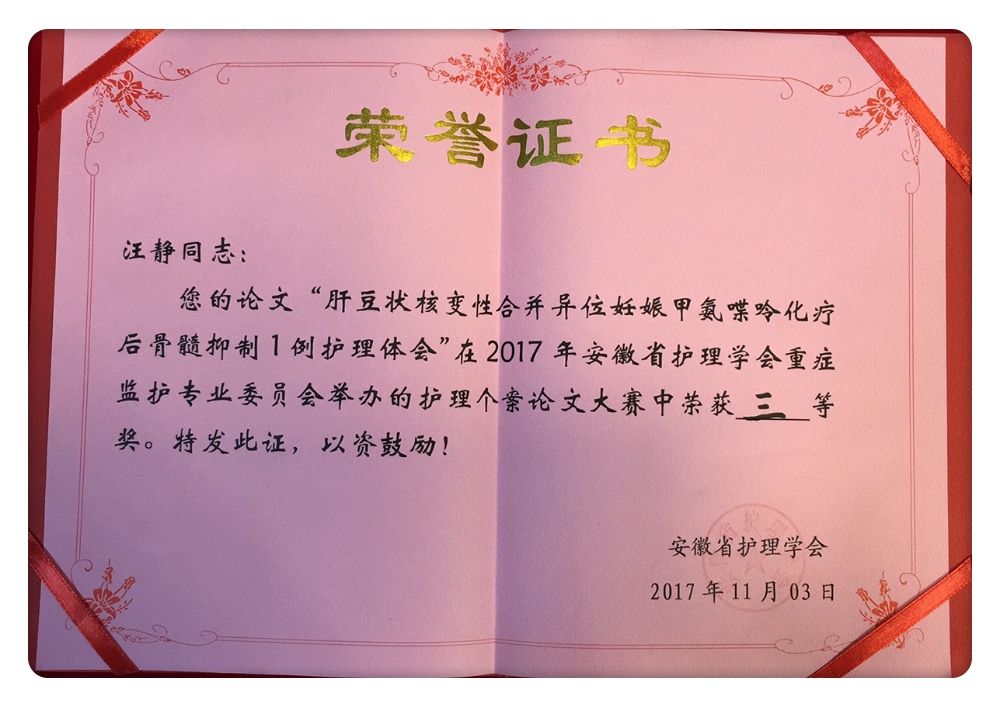 荣誉证书
汪静同志：
您的论文“肝豆状核变性合并异位妊娠甲氨喋呤化疗
后骨髓抑制1例护理体会”在2017年安徽省护理学会重症
监护专业委员会举办的护理个案论文大赛中荣获三等
奖。特发此证，以资鼓励！
安徽省护理学会
2017年11月03日